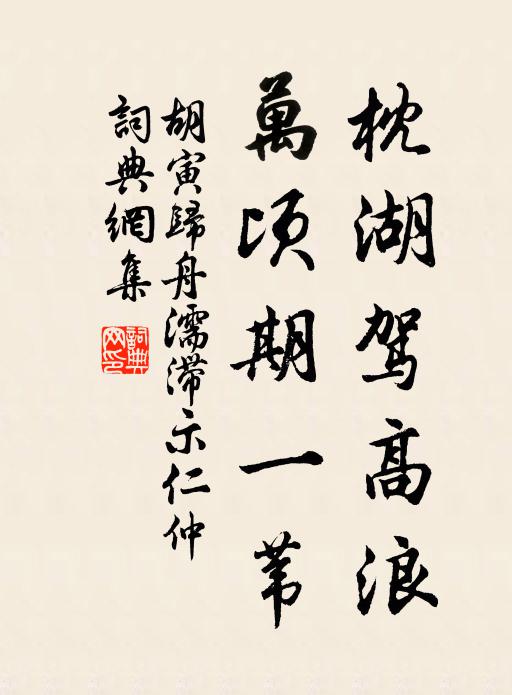 枕湖驾高浪
萬顷期一苇
胡寅歸舟濡滯示仁仲
詞典網集
詞典
网印